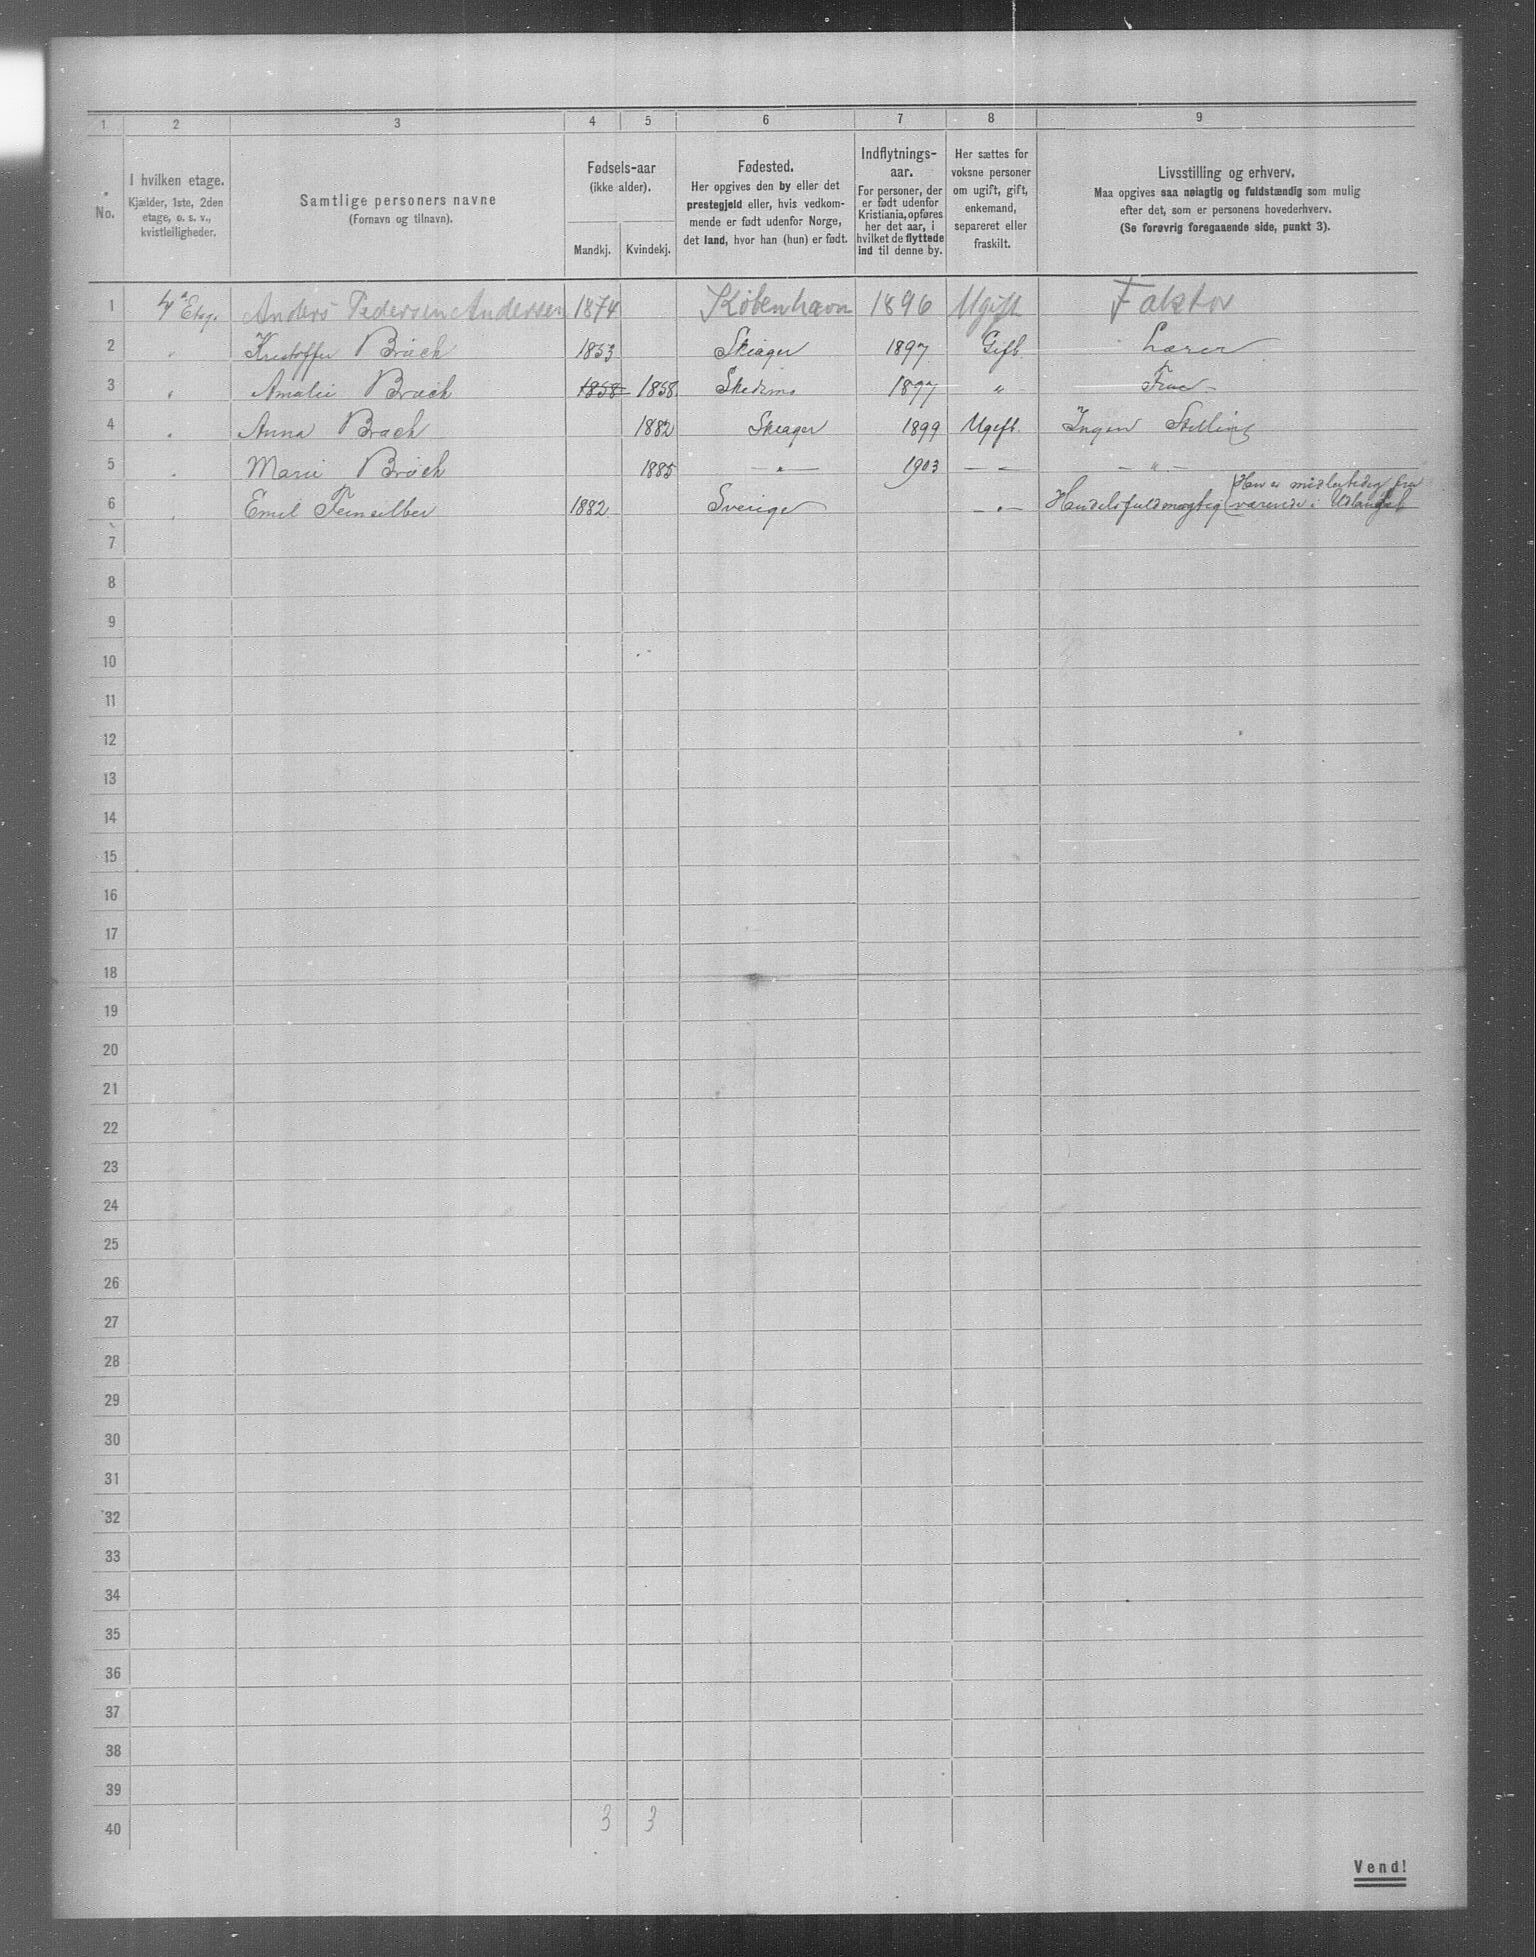 1 2 3 4 5 6 7 8 9
No.
I hvilken etage.
Kjælder, 1ste, 2den
etage, o. s. v.,
kvistleiligheder.
Samtlige personers navne
(Fornavn og tilnavn).
Fødsels-aar
(ikke alder).
Mandkj. Kvindekj.
Fødested.
Her opgives den by eller det
prestegjeld eller, hvis vedkom-
mende er født udenfor Norge,
det land, hvor han (hun) er født.
Indflytnings-
aar.
For personer, der
er født udenfor
Kristiania, opføres
her det aar, i
hvilket de flyttede
ind til denne by.
Her sættes for
voksne personer
om ugift, gift,
enkemand,
separeret eller
fraskilt.
Livsstilling og erhverv.
Maa opgives saa nøiagtig og fuldstændig som mulig
efter det, som er personens hovederhverv.
(Se forøvrig foregaaende side, punkt 3).
1 4 Etag. Anders Pedersen Andersen 1874 København 1896 Ugift Faktor
2 " Kristoffer Bråck 1853 Skiager 1897 Gift Lærer
3 " Amalie Bråck 1858 1858 Skedsmo 1897 " Frue
4 " Anna Bråck 1882 Skiager 1899 Ugift Ingen Stelling
5 " Marie Bråck 1885 — " — 1903 — " — — " —
6 " Emil 1882 Sverige — " — Handelsfuldmægtig (Han er midlertidig fra
værende i Udlandet
7
8
9
10
11
12
13
14
15
16
17
18
19
20
21
22
23
24
25
26
27
28
29
30
31
32
33
34
35
36
37
38
39
40 3 3
Vend!